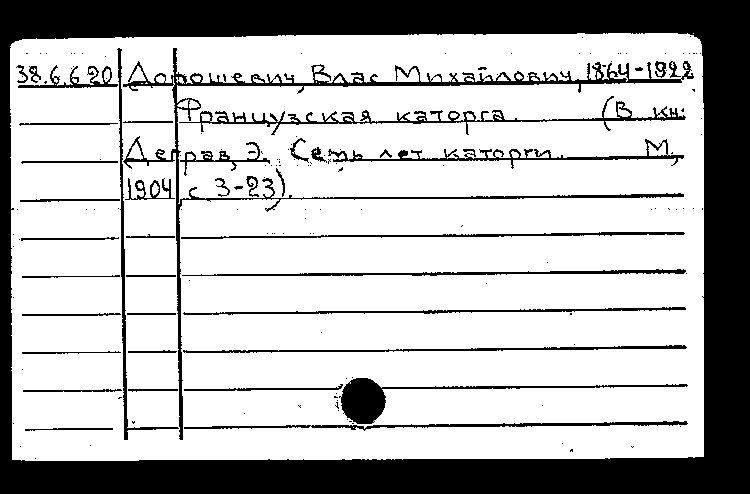 38.6.6.20 Дорошевич, Влас Михайлович, 1864-1922
Французская каторга. (В кн:
Деграв, Э. Семь лет каторги. М.,
1904, с 3-23).